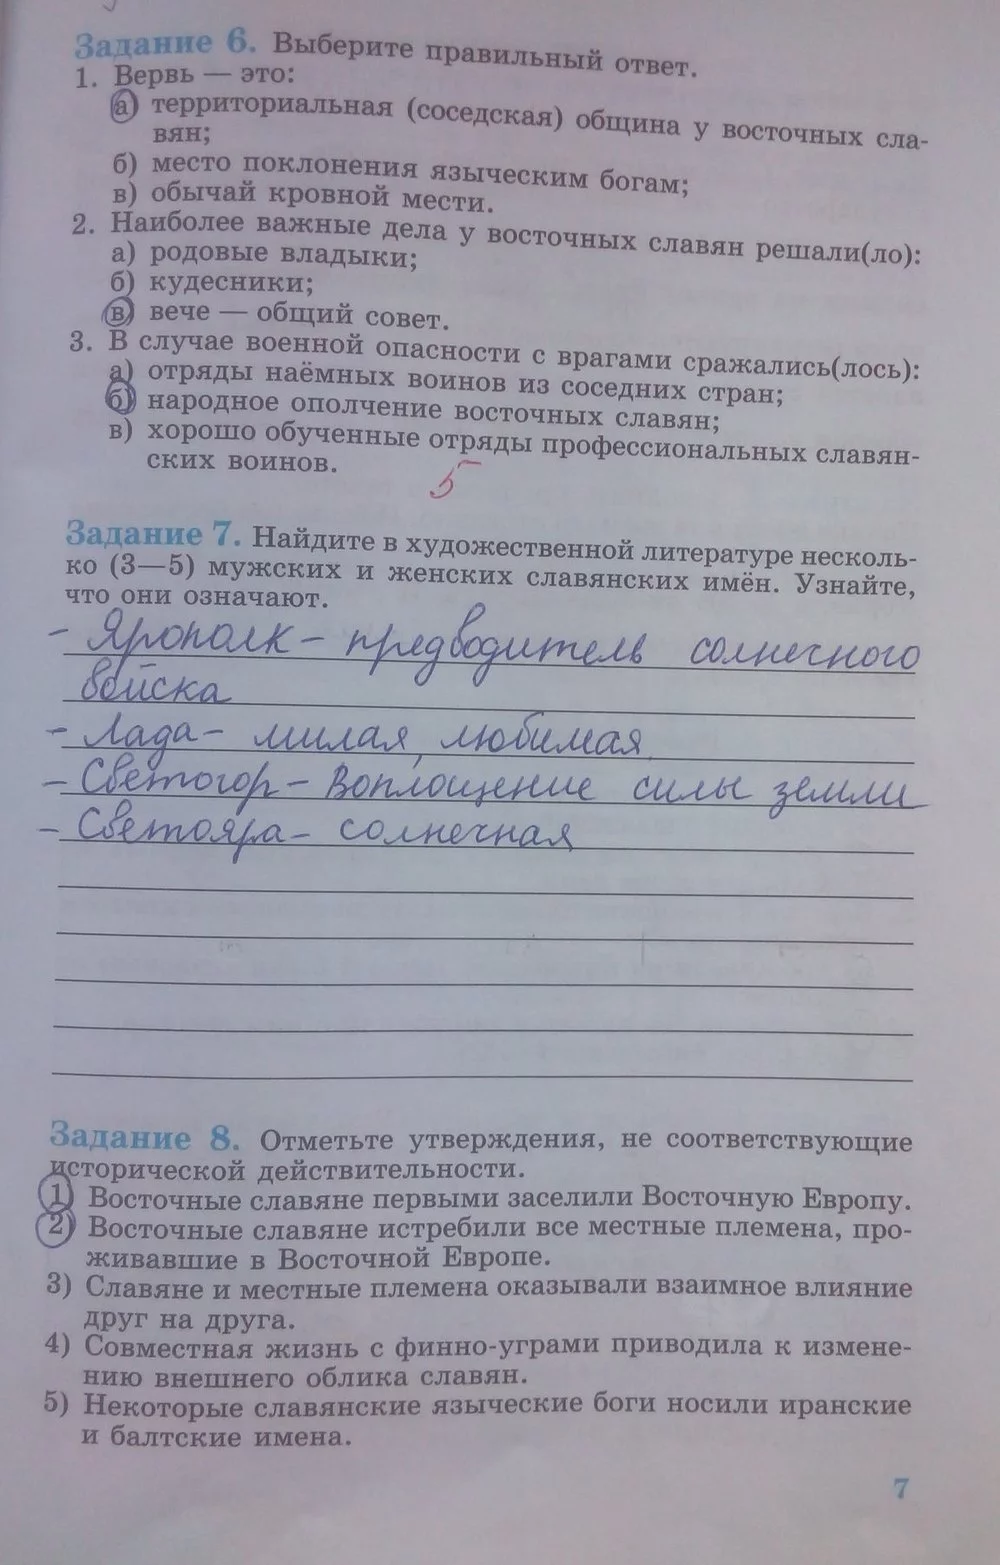 Задание 6. Выберите правильный ответ.
1. Вервь — это:
а) территориальная (соседская) община у восточных сла-
вян;
б) место поклонения языческим богам;
в) обычай кровной мести.
2. Наиболее важные дела у восточных славян решали(ло):
а) родовые владыки;
б) кудесники;
в) вече — общий совет.
3. В случае военной опасности с врагами сражались(лось):
а) отряды наёмных воинов из соседних стран;
б) народное ополчение восточных славян;
в) хорошо обученные отряды профессиональных славян-
ских воинов.
5
Задание 7. Найдите в художественной литературе несколь-
ко (3—5) мужских и женских славянских имён. Узнайте,
что они означают.
- Ярополк - предводитель солнечного
войска
- Лада - милая, любимая
- Светогор - воплощение силы земли
- Светояра - солнечная
Задание 8. Отметьте утверждения, не соответствующие
исторической действительности.
1) Восточные славяне первыми заселили Восточную Европу.
2) Восточные славяне истребили все местные племена, про-
живавшие в Восточной Европе.
3) Славяне и местные племена оказывали взаимное влияние
друг на друга.
4) Совместная жизнь с финно-уграми приводила к измене-
нию внешнего облика славян.
5) Некоторые славянские языческие боги носили иранские
и балтские имена.
7